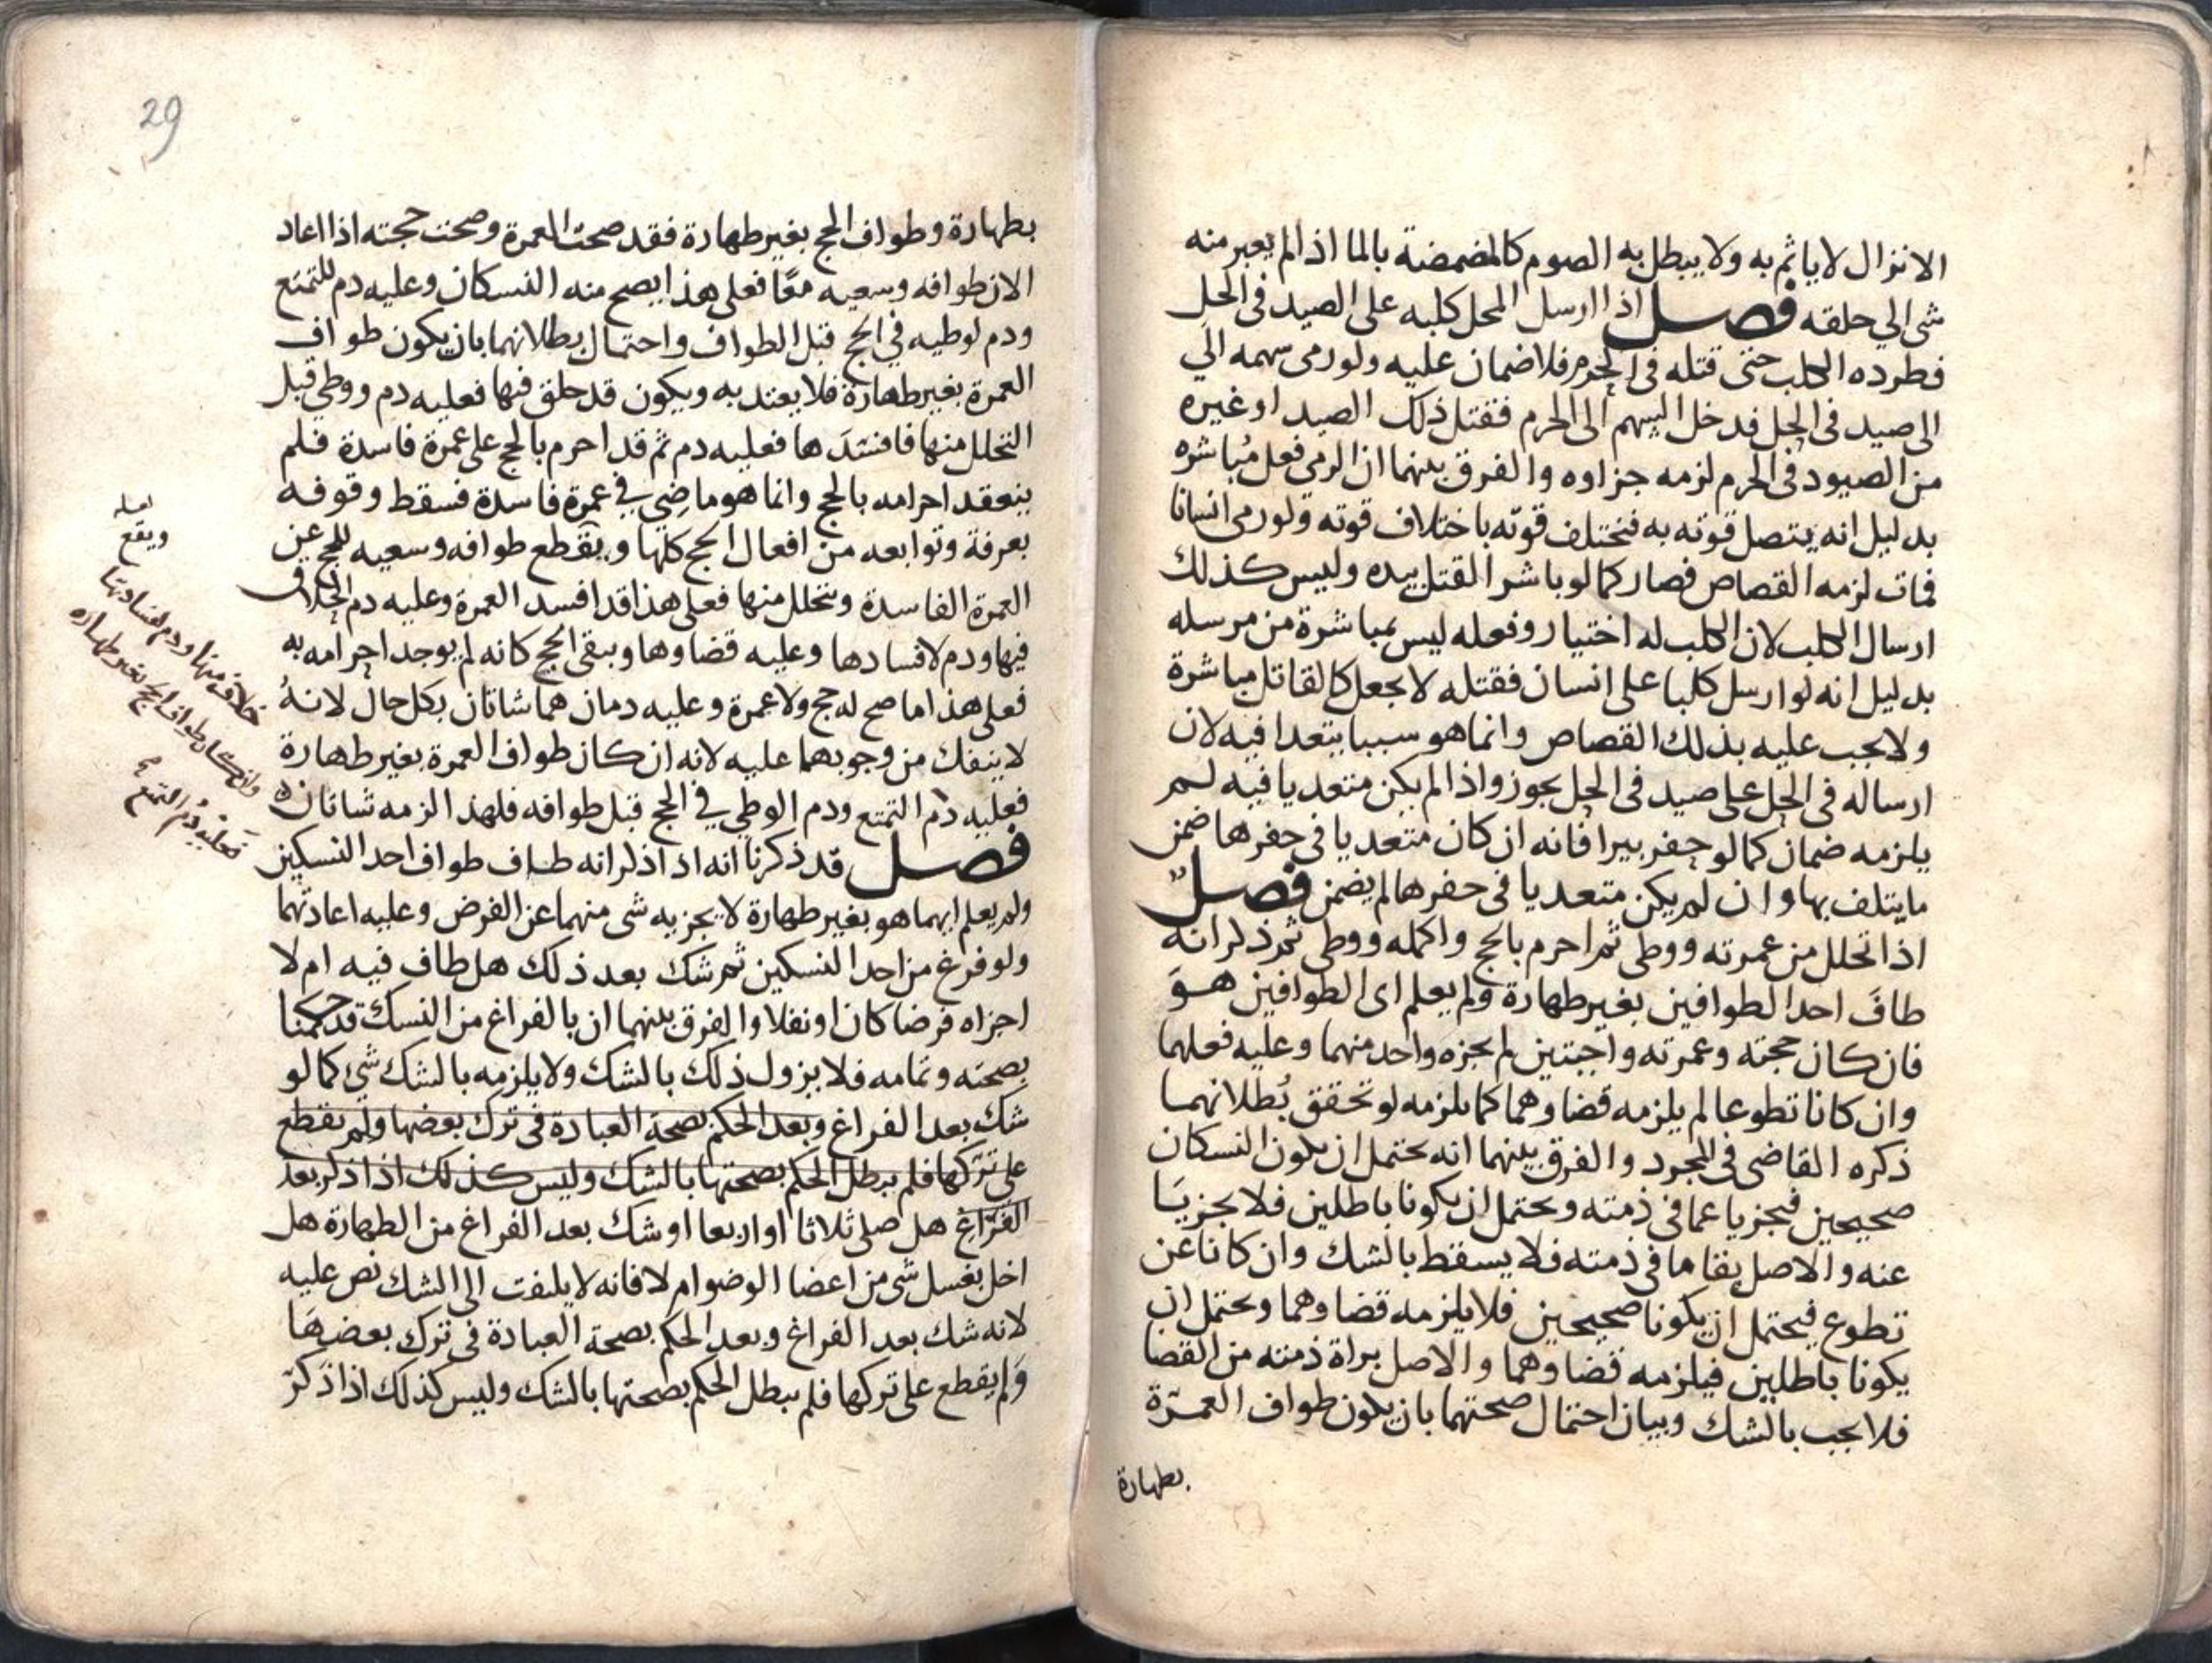 الانزال لا ياثم به ولا يبطل به الصوم كالمضمضة بالما اذا لم يعبر منه
شى الي حلقه فصل اذا ارسل المحل كلبه على الصيد فى الحل
فطرده الكلب حتى قتله فى الحرم فلا ضمان عليه ولو رمى سهمه الي
الى صيد فى الحل فدخل السهم الى الحرم فقتل ذلك الصيد او غيره
من الصيود فى الحرم لزمه جزاوه والفرق بينهما ان الرمى فعل مُباشره
بدليل انه يتصل قوته به فتختلف قوته باختلاف قوته ولو رمى انسانا
فمات لزمه القصاص فصار كما لو باشر القتل بيده وليس كذلك
ارسال الكلب لان الكلب له اختيار وفعله ليس بمباشرة من مرسله
بدليل انه لو ارسل كلبا على انسان فقتله لا يجعل كالقاتل مباشرة
ولا يجب عليه بذلك القصاص وانما هو سببا يتعدا فيه لان
ارساله فى الحل على صيد فى الحل يجوز واذا لم يكن متعديا فيه لم
يلزمه ضمان كما لو حفر بيرا فانه ان كان متعديا فى حفرها ضمن
ما يتلف بها وان لم يكن متعديا فى حفرها لم يضمن فصل
اذا تحلل من عمرته ووطى ثم احرم بالحج واكمله ووطى ثم ذكر انه
طافَ احد الطوافين بغير طهارة ولم يعلم اى الطوافين هوَ
فان كان حجته وعمرته واجبتين لم يجزه واحد منهما وعليه فعلهما
وان كانا تطوعا لم يلزمه قضاوهما كما يلزمه لو تحقق بُطلانهما
ذكره القاضى فى المجرد والفرق بينهما انه يحتمل ان يكون النسكان
صحيحين فيجزيا عما فى ذمته ويحتمل ان يكونا باطلين فلا يجزيَا
عنه والاصل بقا ما فى ذمته فلا يسقط بالشك وان كانا عن
تطوع فيحتمل ان يكونا صحيحين فلا يلزمه قضاوهما ويحتمل ان
يكونا باطلين فيلزمه قضاوهما والاصل براة ذمته من القضا
فلا يجب بالشك وبيان احتمال صحتهما بان يكون طواف العمرّة
بطهارة
29
بطهارة وطواف الحج بغير طهارة فقد صحت العمرة وصحت حجته اذا اعاد
الان طوافه وسعيه معًا فعلى هذا يصح منه النسكان وعليه دم للتمتع
ودم لوطيه في الحج قبل الطواف واحتمال بطلانهما بان يكون طواف
العمرة بغير طهارة فلا يعتد به ويكون قد حلق فيها فعليه دم ووطي قبل
التحلل منها فافسدَها فعليه دم ثم قد احرم بالحج على عمرة فاسدة فلم
ينعقد احرامه بالحج وانما هو ماضِي في عمرة فاسدة فسقط وقوفه
بعرفة وتوابعه من افعال الحج كلها ويقطع طوافه وسعيه للحج عن
العمرة الفاسدة ويتحلل منها فعلى هذا قد افسد العمرة وعليه دم الحلاف
فيها ودم لافسادها وعليه قضاوها وبقى الحج كانه لم يوجد احرامه به
فعلى هذا ما صح له حج ولا عمرة وعليه دمان هما شاتان بكل حال لانهُ
لا ينفك من وجوبهما عليه لانه ان كان طواف العمرة بغير طهارة
فعليه دم التمتع ودم الوطي في الحج قبل طوافه فلهذا لزمه شاتان
فصل قد ذكرنا انه اذا ذكر انه طاف طواف احد النسكين
ولم يعلم ايهما هو بغير طهارة لا يجزيه شى منهما عن الفرض وعليه اعادتهما
ولو فرغ من احد النسكين ثم شك بعد ذلك هل طاف فيه ام لا
اجزاه فرضا كان او نفلا والفرق بينهما ان بالفراغ من النسك قد حكمنا
بصحته وتمامه فلا يزول ذلك بالشك ولا يلزمه بالشك شي كما لو
شك بعد الفراغ وبعد الحكم بصحة العبادة فى ترك بعضها ولم يقطع
على تركها فلم يبطل الحكم بصحتها بالشك وليس كذلك اذا ذكر بعد
الفرّاغ هل صلى ثلاثا او اربعا او شك بعد الفراغ من الطهارة هل
اخل بغسل شى من اعضا الوضو ام لا فانه لا يلتفت الى الشك نص عليه
لانه شك بعد الفراغ وبعد الحكم بصحة العبادة فى ترك بعضهَا
وَلم يقطع على تركها فلم يبطل الحكم بصحتها بالشك وليس كذلك اذا ذكرَ
لعله
ويقع
خلاف منها ودم لفسادتها
وان كان طواف الحج بغير طهاره
فعليه دمُ التمتع